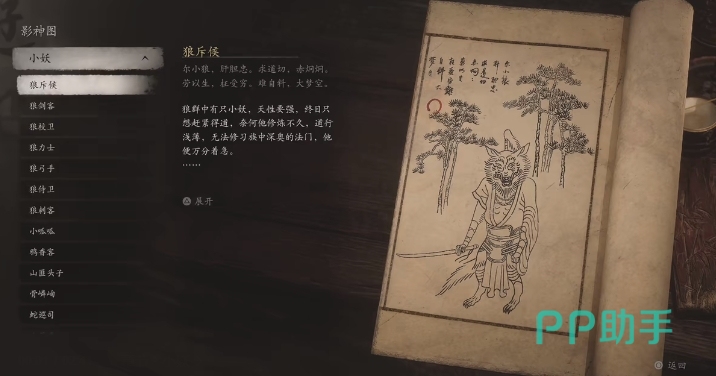 影神图
小妖
狼斥候
狼剑客
狼校卫
狼力士
狼弓手
狼侍卫
狼刺客
小呱呱
鸦香客
山匪头子
骨嶙峋
蛇巡司
狼斥候
尔小狼，肝胆忠。求道切，赤炯炯。
劳以生，征受穷。难自料，大梦空。
狼群中有只小妖，天性要强，终日只
想赶紧得道，奈何他修炼不久，道行
浅薄，无法修习族中深奥的法门，他
便万分着急。
……
展开
PP助手
返回